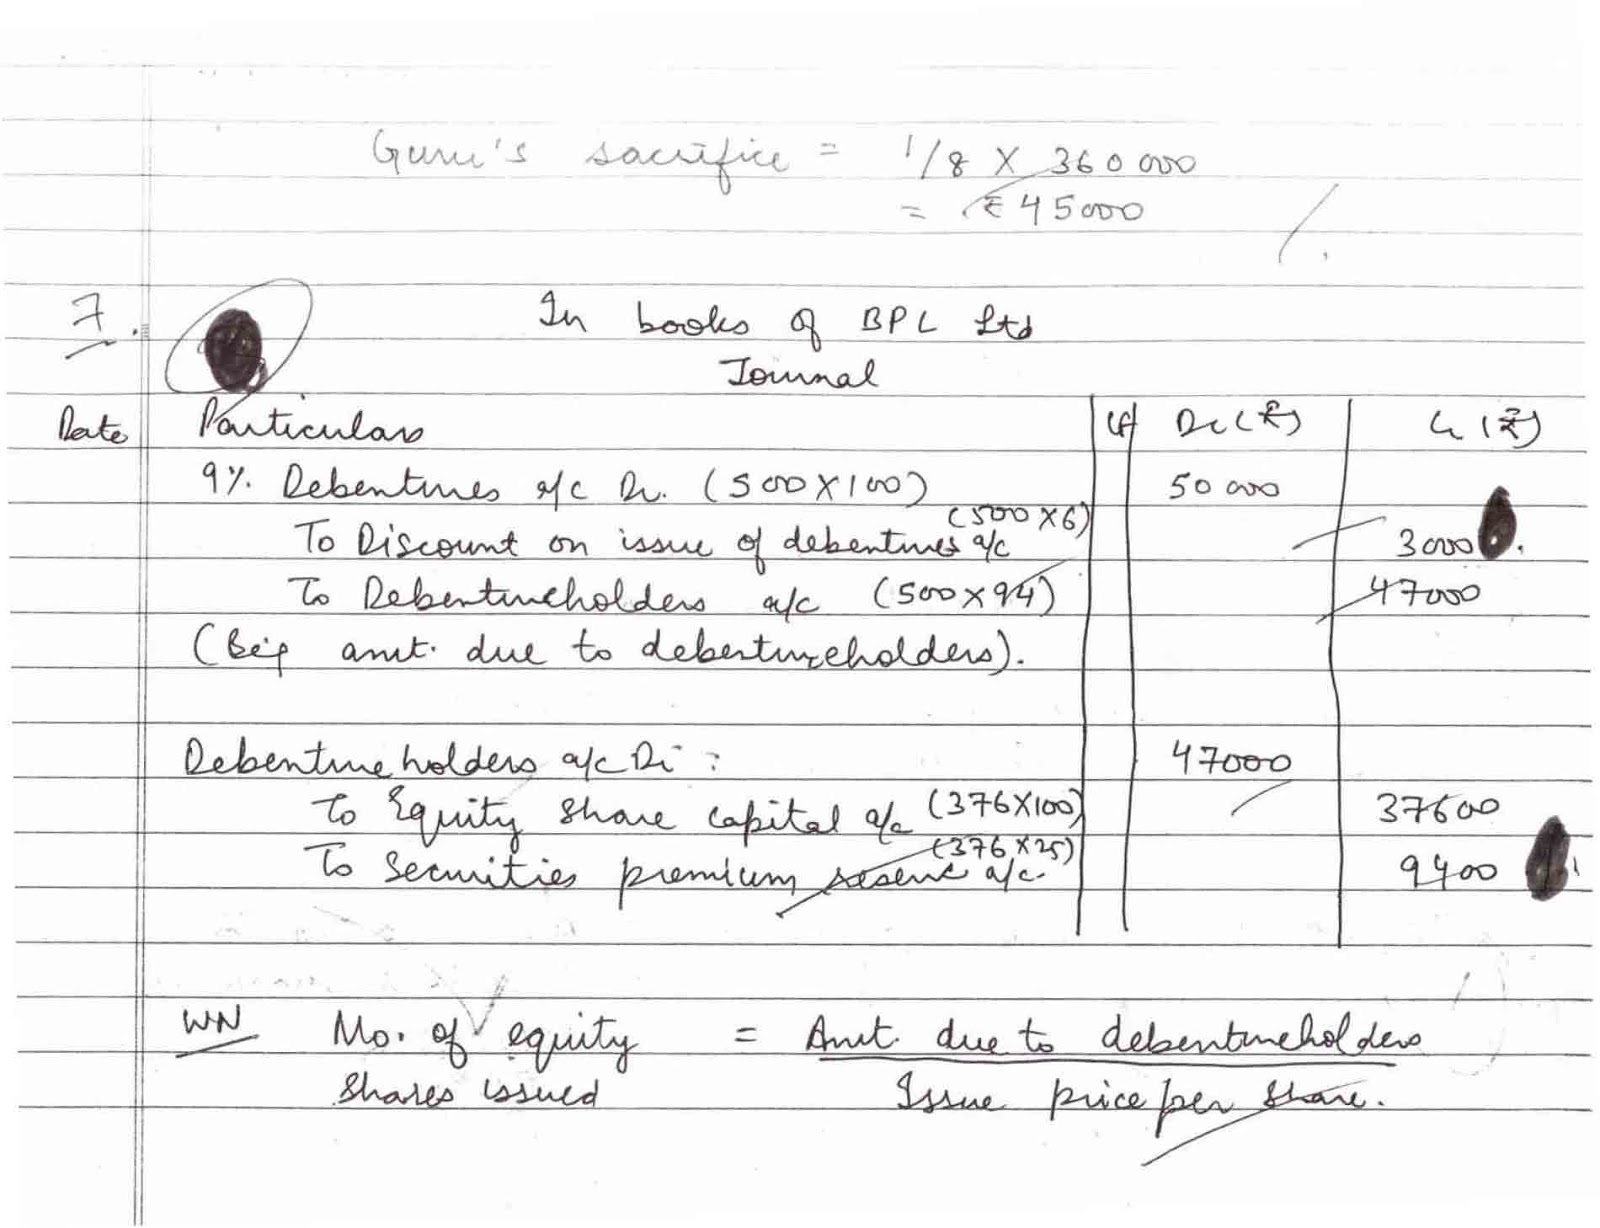 Guru's sacrifice = 1/8 X 360000
= ₹45000
7.
In books of BPL Ltd
Journal
Date Particulars LF Dr (₹) Cr (₹)
9% Debentures a/c Dr. (500X100) 50000
To Discount on issue of debentures a/c (500X6) 3000
To Debentureholders a/c (500X94) 47000
(Being amt. due to debentureholders).
Debentureholders a/c Dr 47000
To Equity share capital a/c (376X100) 37600
To Securities premium reserve a/c. (376X25) 9400
WN No. of equity shares issued = Amt. due to debentureholders
Issue price per share.